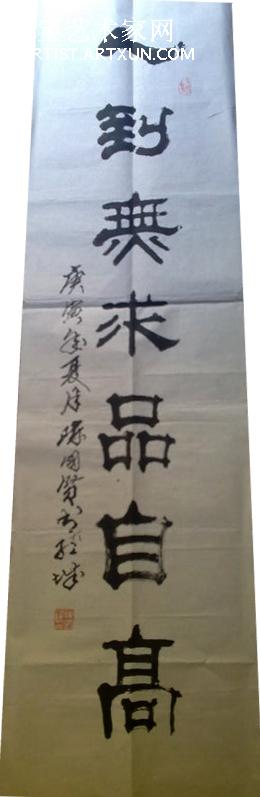 艺术家网
ARTIST.ARTXUN.COM
到無求品自高
庚寅年夏月陈国贤书于